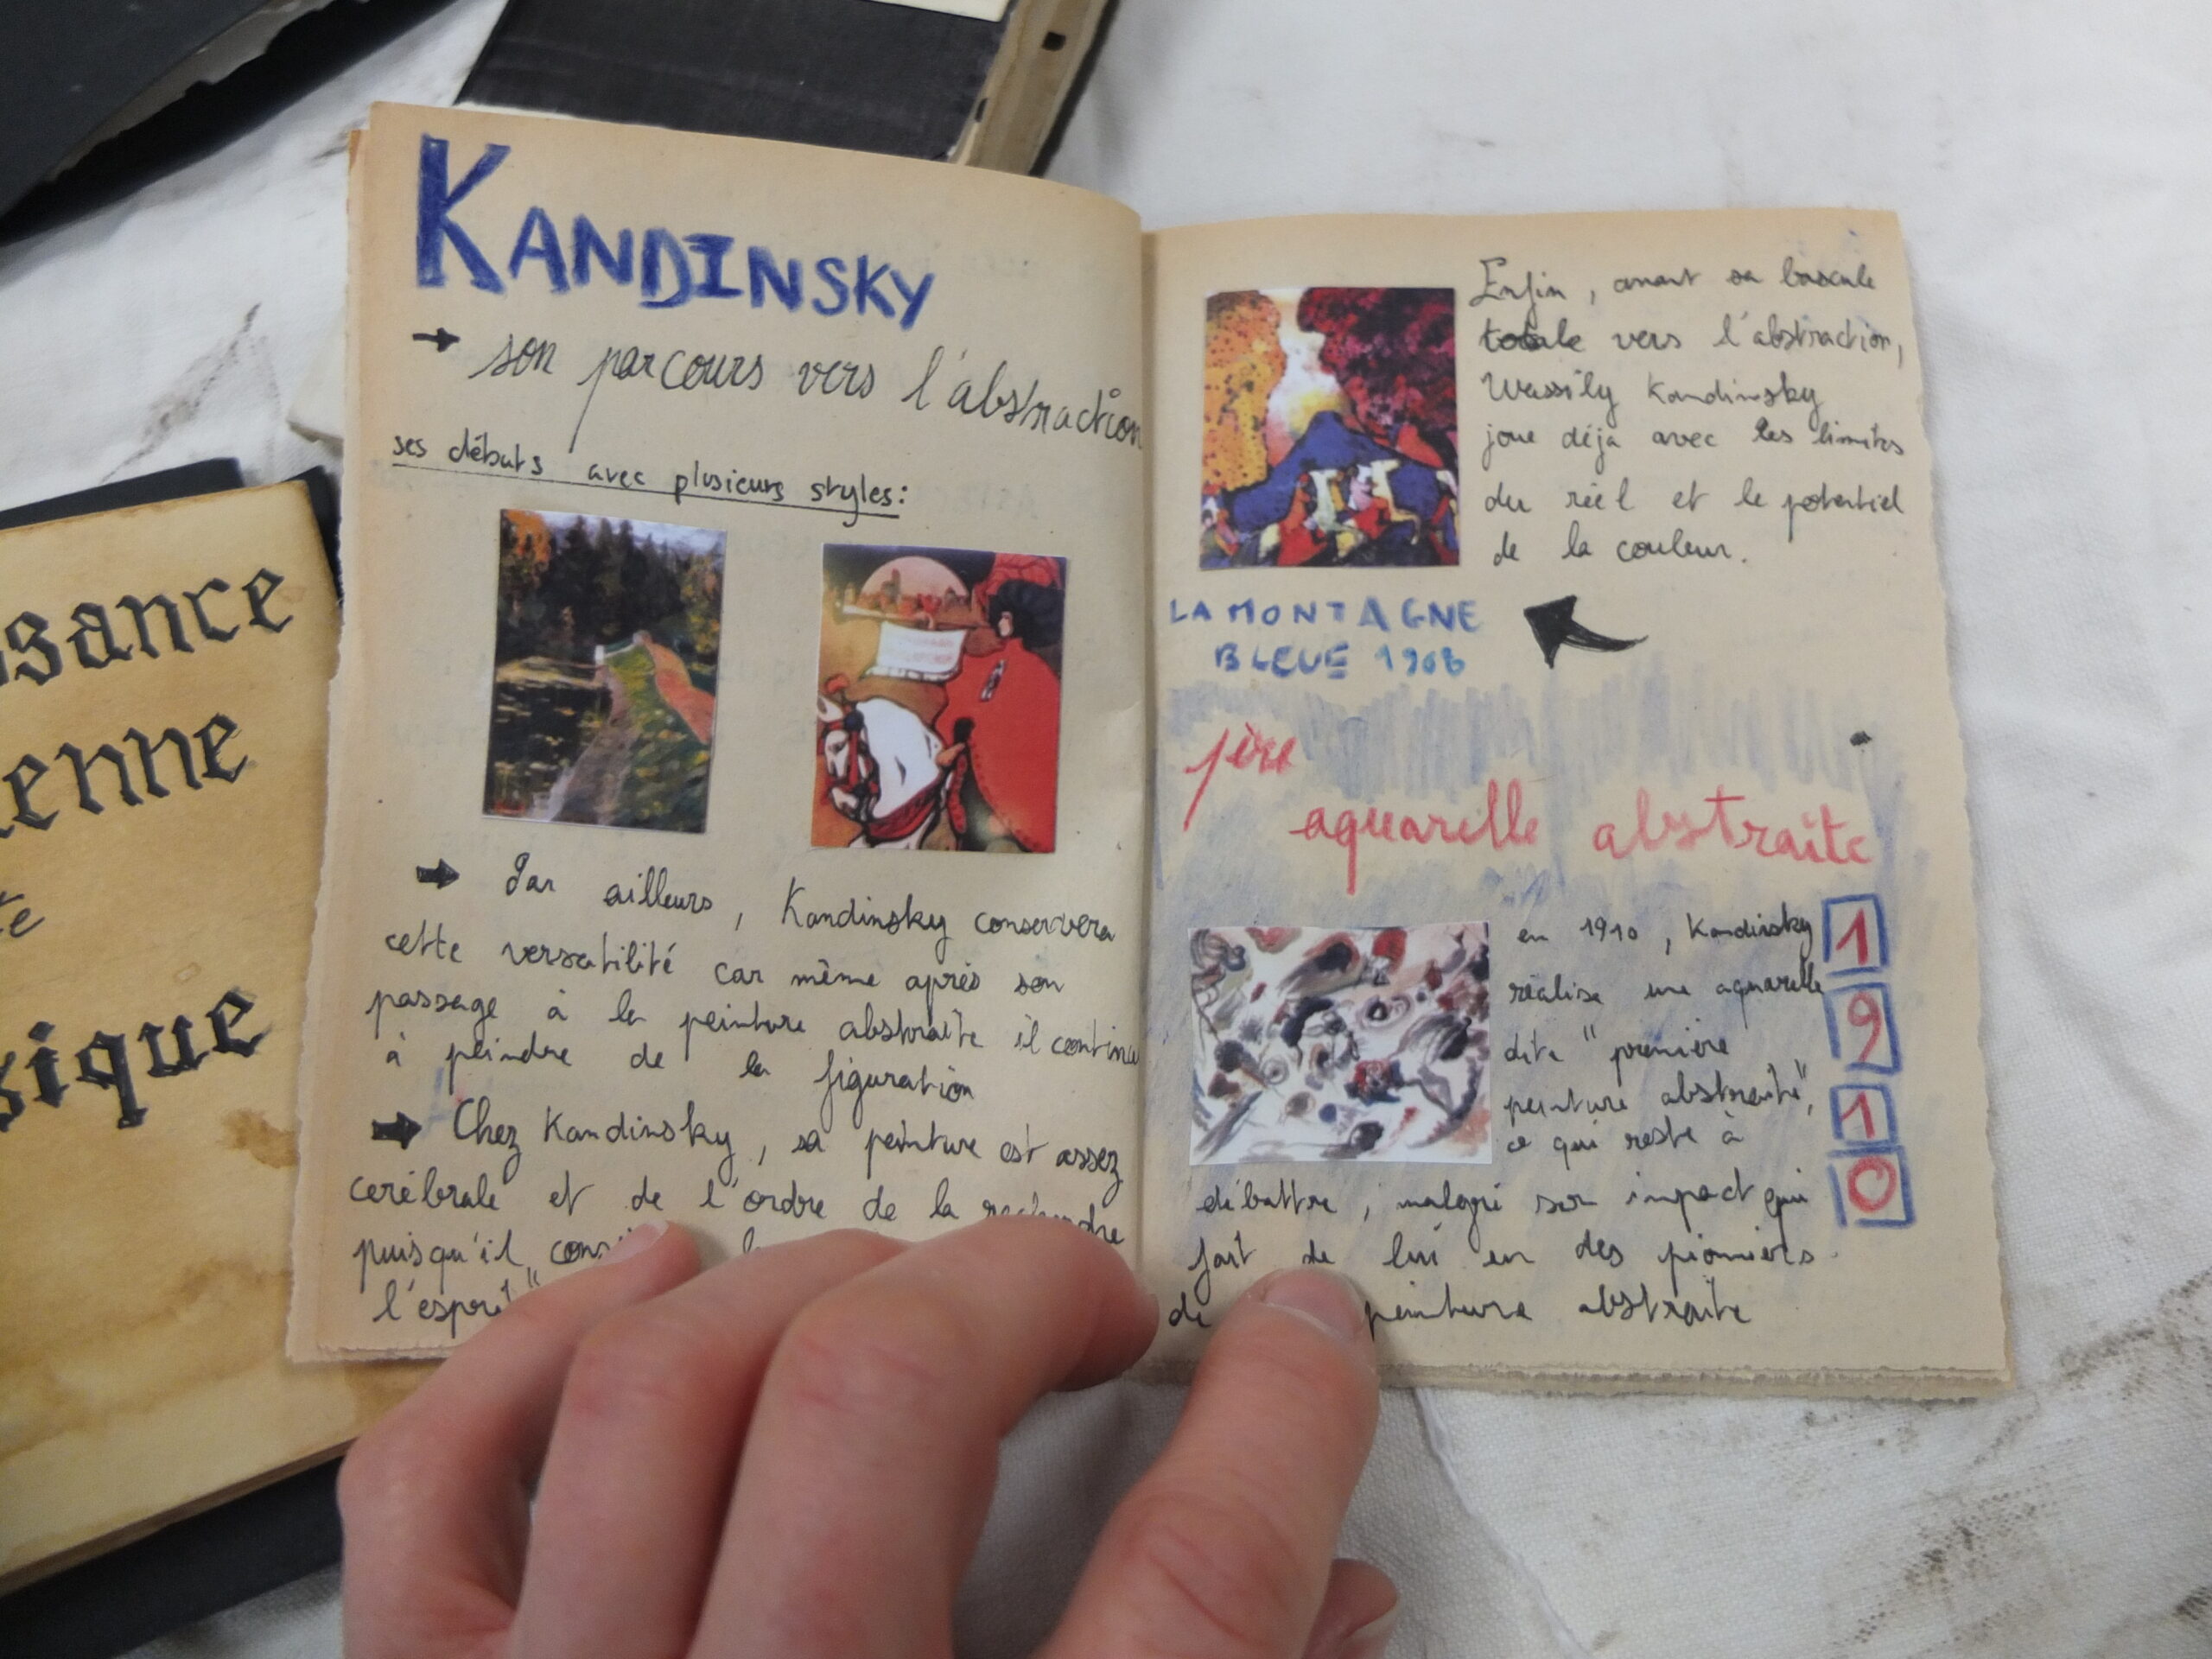 KANDINSKY
son parcours vers l'abstraction
ses débuts avec plusieurs styles:
Par ailleurs, Kandinsky conservera
cette versatilité car même après son
passage à la peinture abstraite il continu
à peindre de la figuration
Chez Kandinsky, sa peinture est assez
cerébrale et de l'ordre de la
puisqu'il
l'esprit"
Enfin, avant sa bascule
totale vers l'abstraction,
Wassily Kandinsky
joue déja avec les limites
du réel et le potentiel
de la couleur.
LA MONTAGNE
BLEUE 1908
1ère
aquarelle abstraite
en 1910, Kandinsky
réalise une aquarelle
dite "première
peinture abstraite",
ce qui reste à
débattre, malgré son impact qui
fait de lui un des pionniers
de peinture abstraite
1
9
1
0
ssance
enne
sique